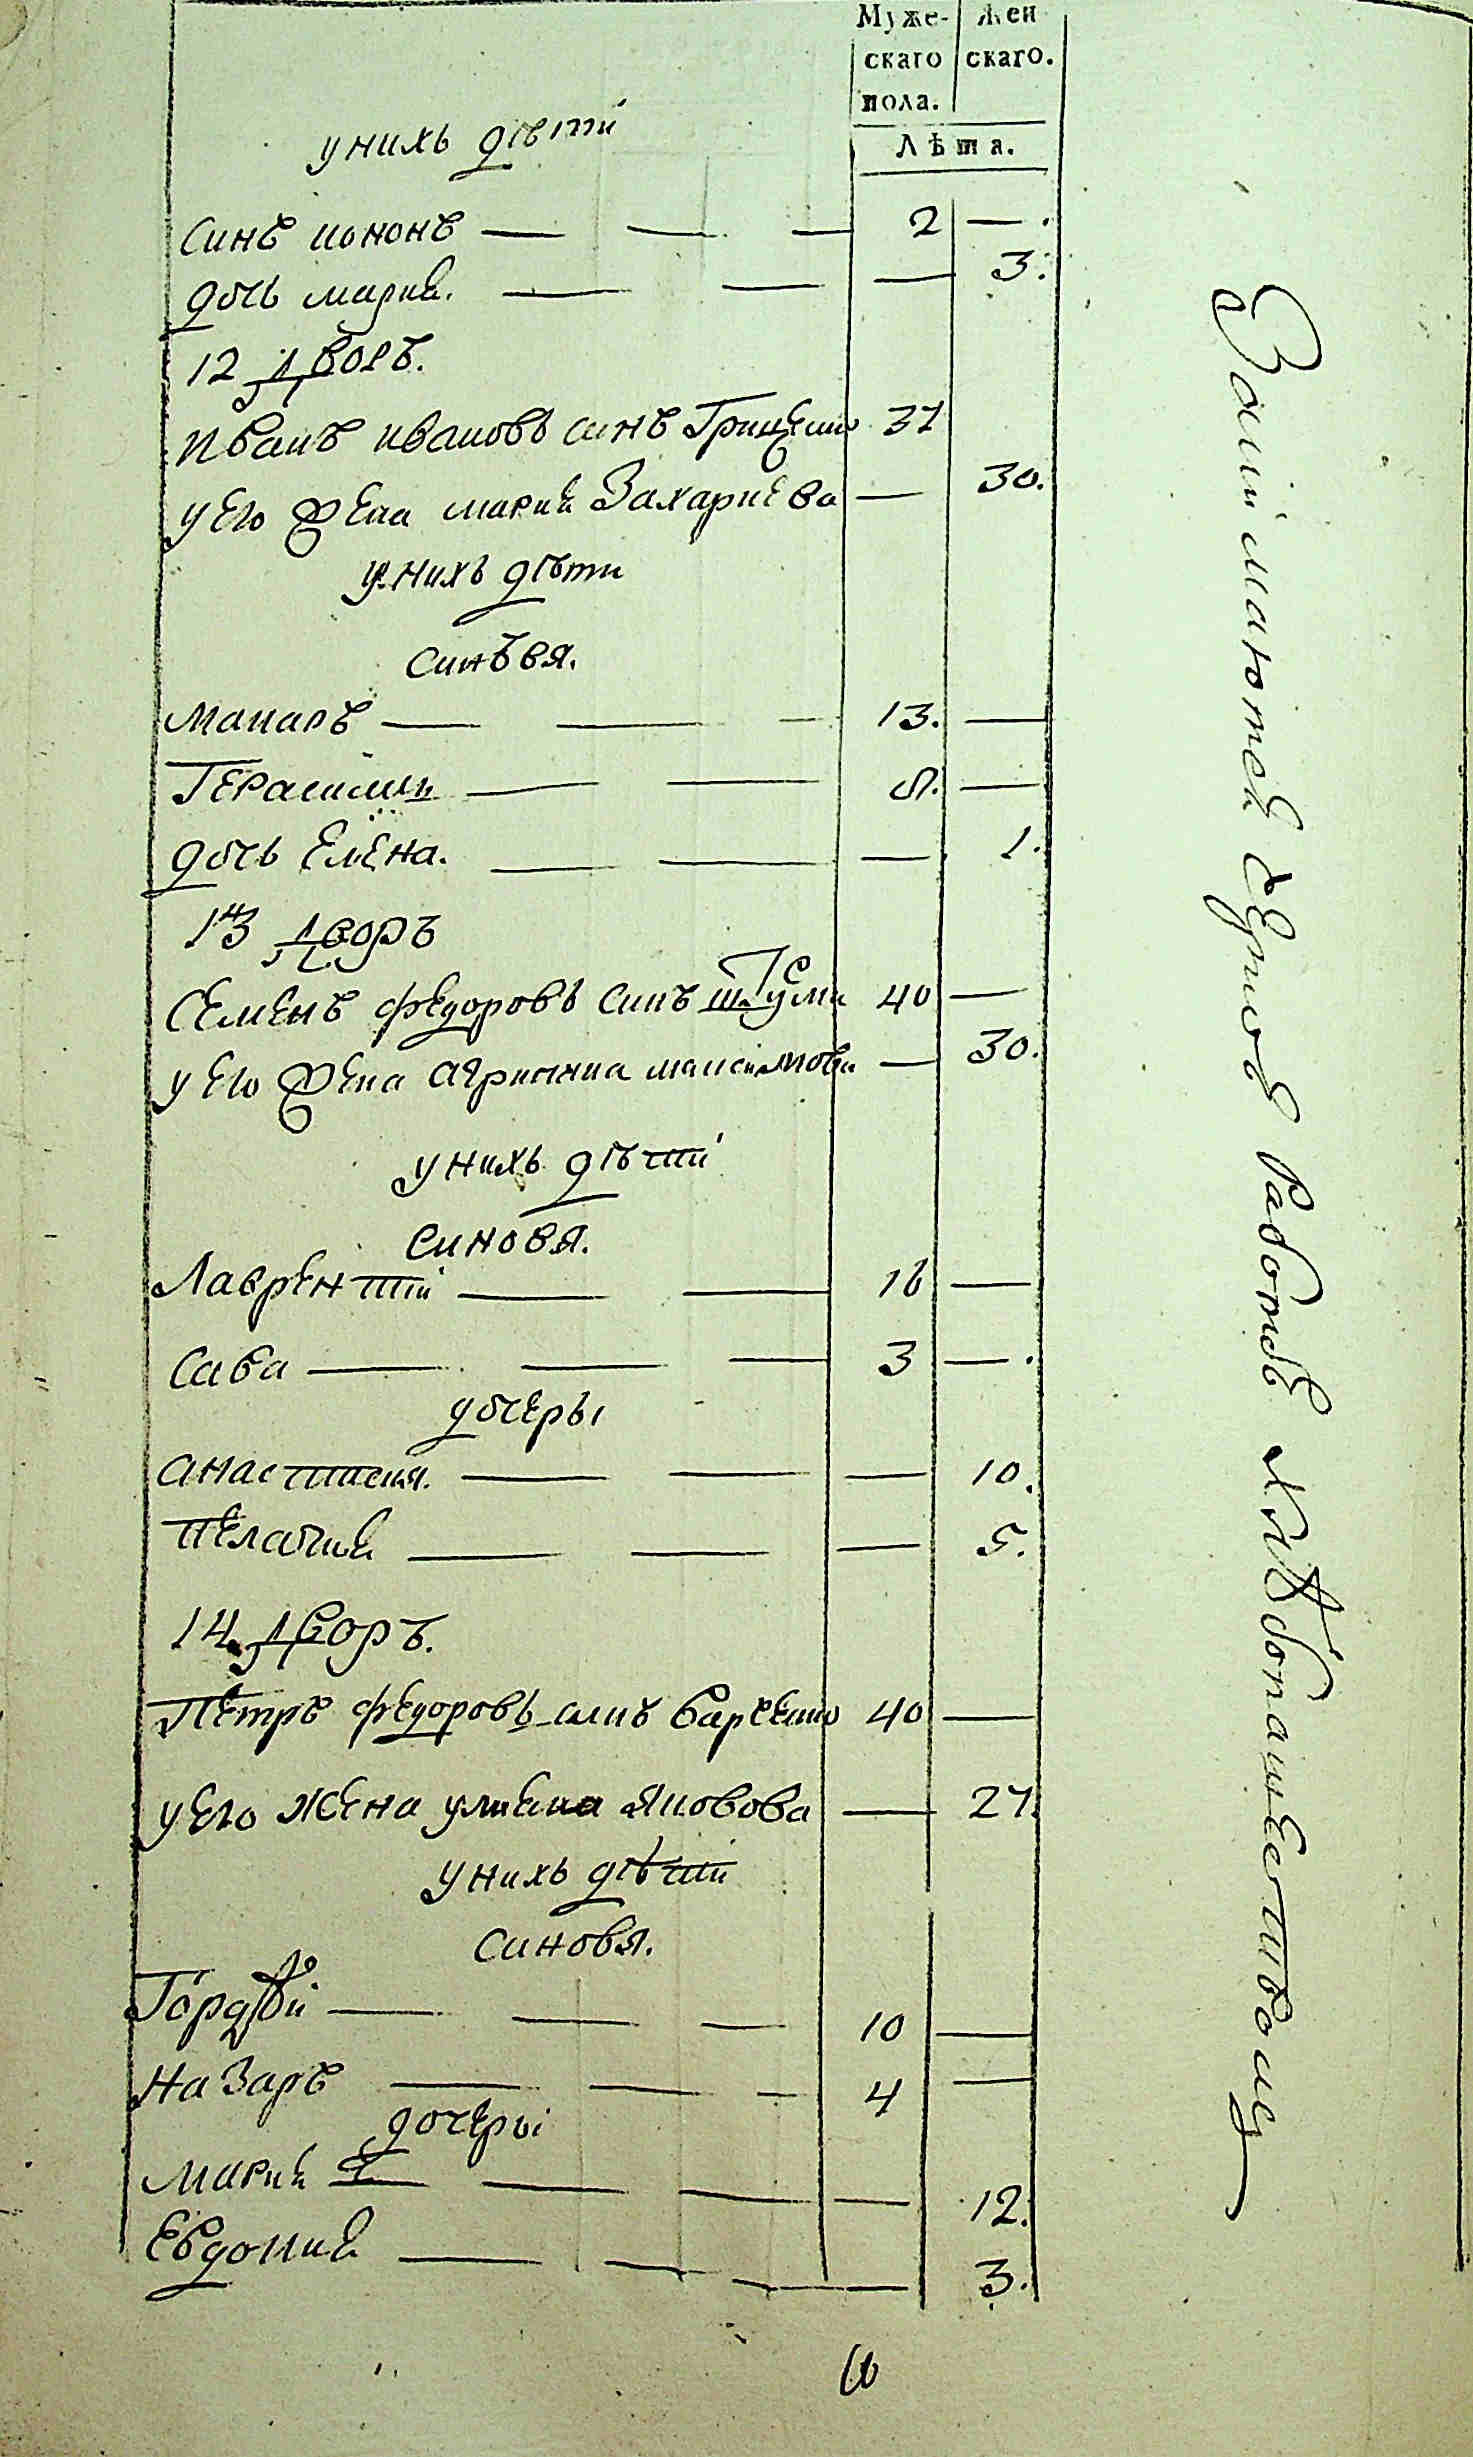 Муже- Жен
скаго скаго.
пола.
Лѣта.
у нихъ дѣти
синъ кононъ 2 —
дочь мария. 3.
12 дворъ.
иванъ ивановъ синъ Гриценко 37
у его жена мария Захариева — 30.
у нихъ дѣти
синъвя.
макаръ 13. —
Герасимъ 8. —
дочь Елена. — 1.
13 дворъ
Семенъ федоровъ синъ 40 —
у его жена агрипина максимова — 30.
у нихъ дѣти
синовя.
Лаврентій 16 —
Сава 3 —
дочеры
анастасия. — 10.
пелагия — 5.
14 дворъ.
Петръ федоровъ синъ 40 —
у его жена улияна яковова — 27.
у нихъ дѣти
синовя.
Гордѣй 10 —
Назаръ 4 —
дочеры
мария — 12.
Евдокия — 3.
Занімаютея работъ хлѣбопашествомъ